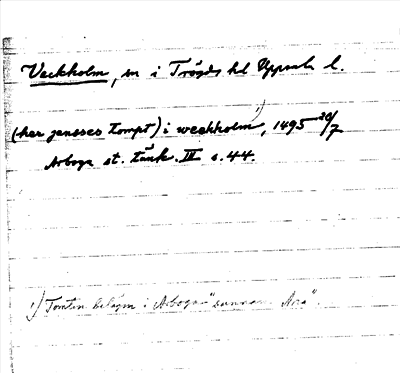 Veckholm, sn i Trögds hd Uppsala l.
(her jensses tompt) i weckholm¹⁾, 1495 20/7
Arboga st. tänk. II s. 44.
1) Tomten belägen i Arboga "sunnan Åna".